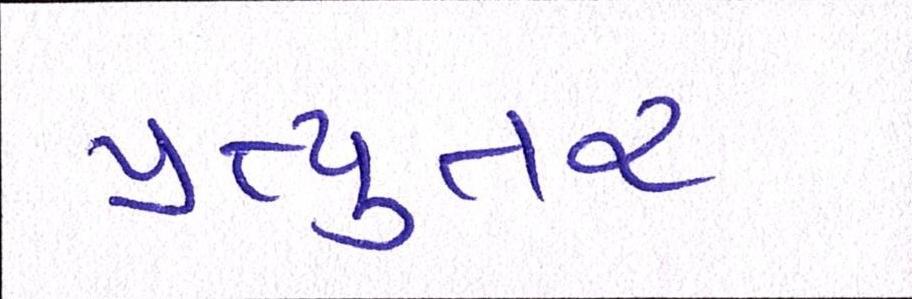 પ્રત્યુતર